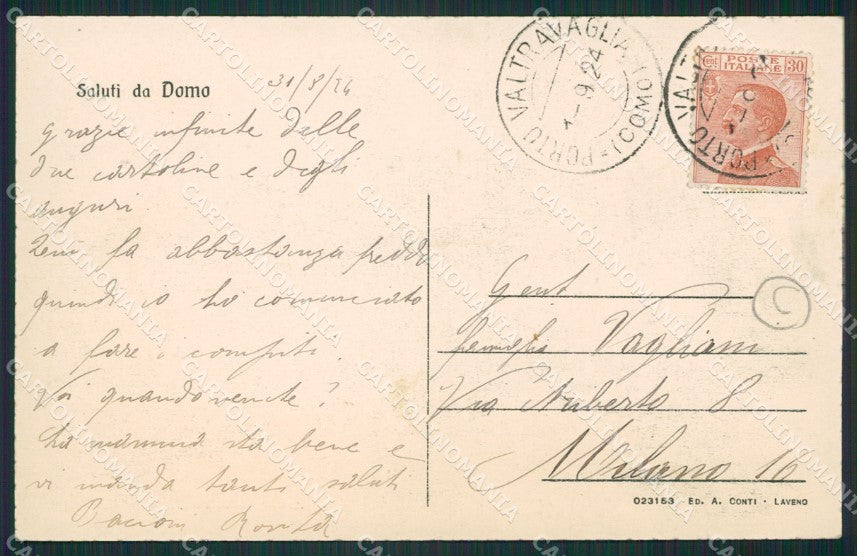 Saluti da Domo
31/8/24
Grazie infinite delle
due cartoline e degli
auguri
fa abbastanza freddo
quindi io ho cominciato
a fare i compiti.
Voi quando venite?
La mamma sta bene e
vi manda tanti saluti
Bacioni
PORTO VALTRAVAGLIA (COMO)
1-9.24
POSTE ITALIANE
CENT 30
PORTO VALT
C
Gent
famiglia Vagliani
Via Ariberto 8
Milano 16
023153 ED. A. CONTI - LAVENO
CARTOLINOMANIA